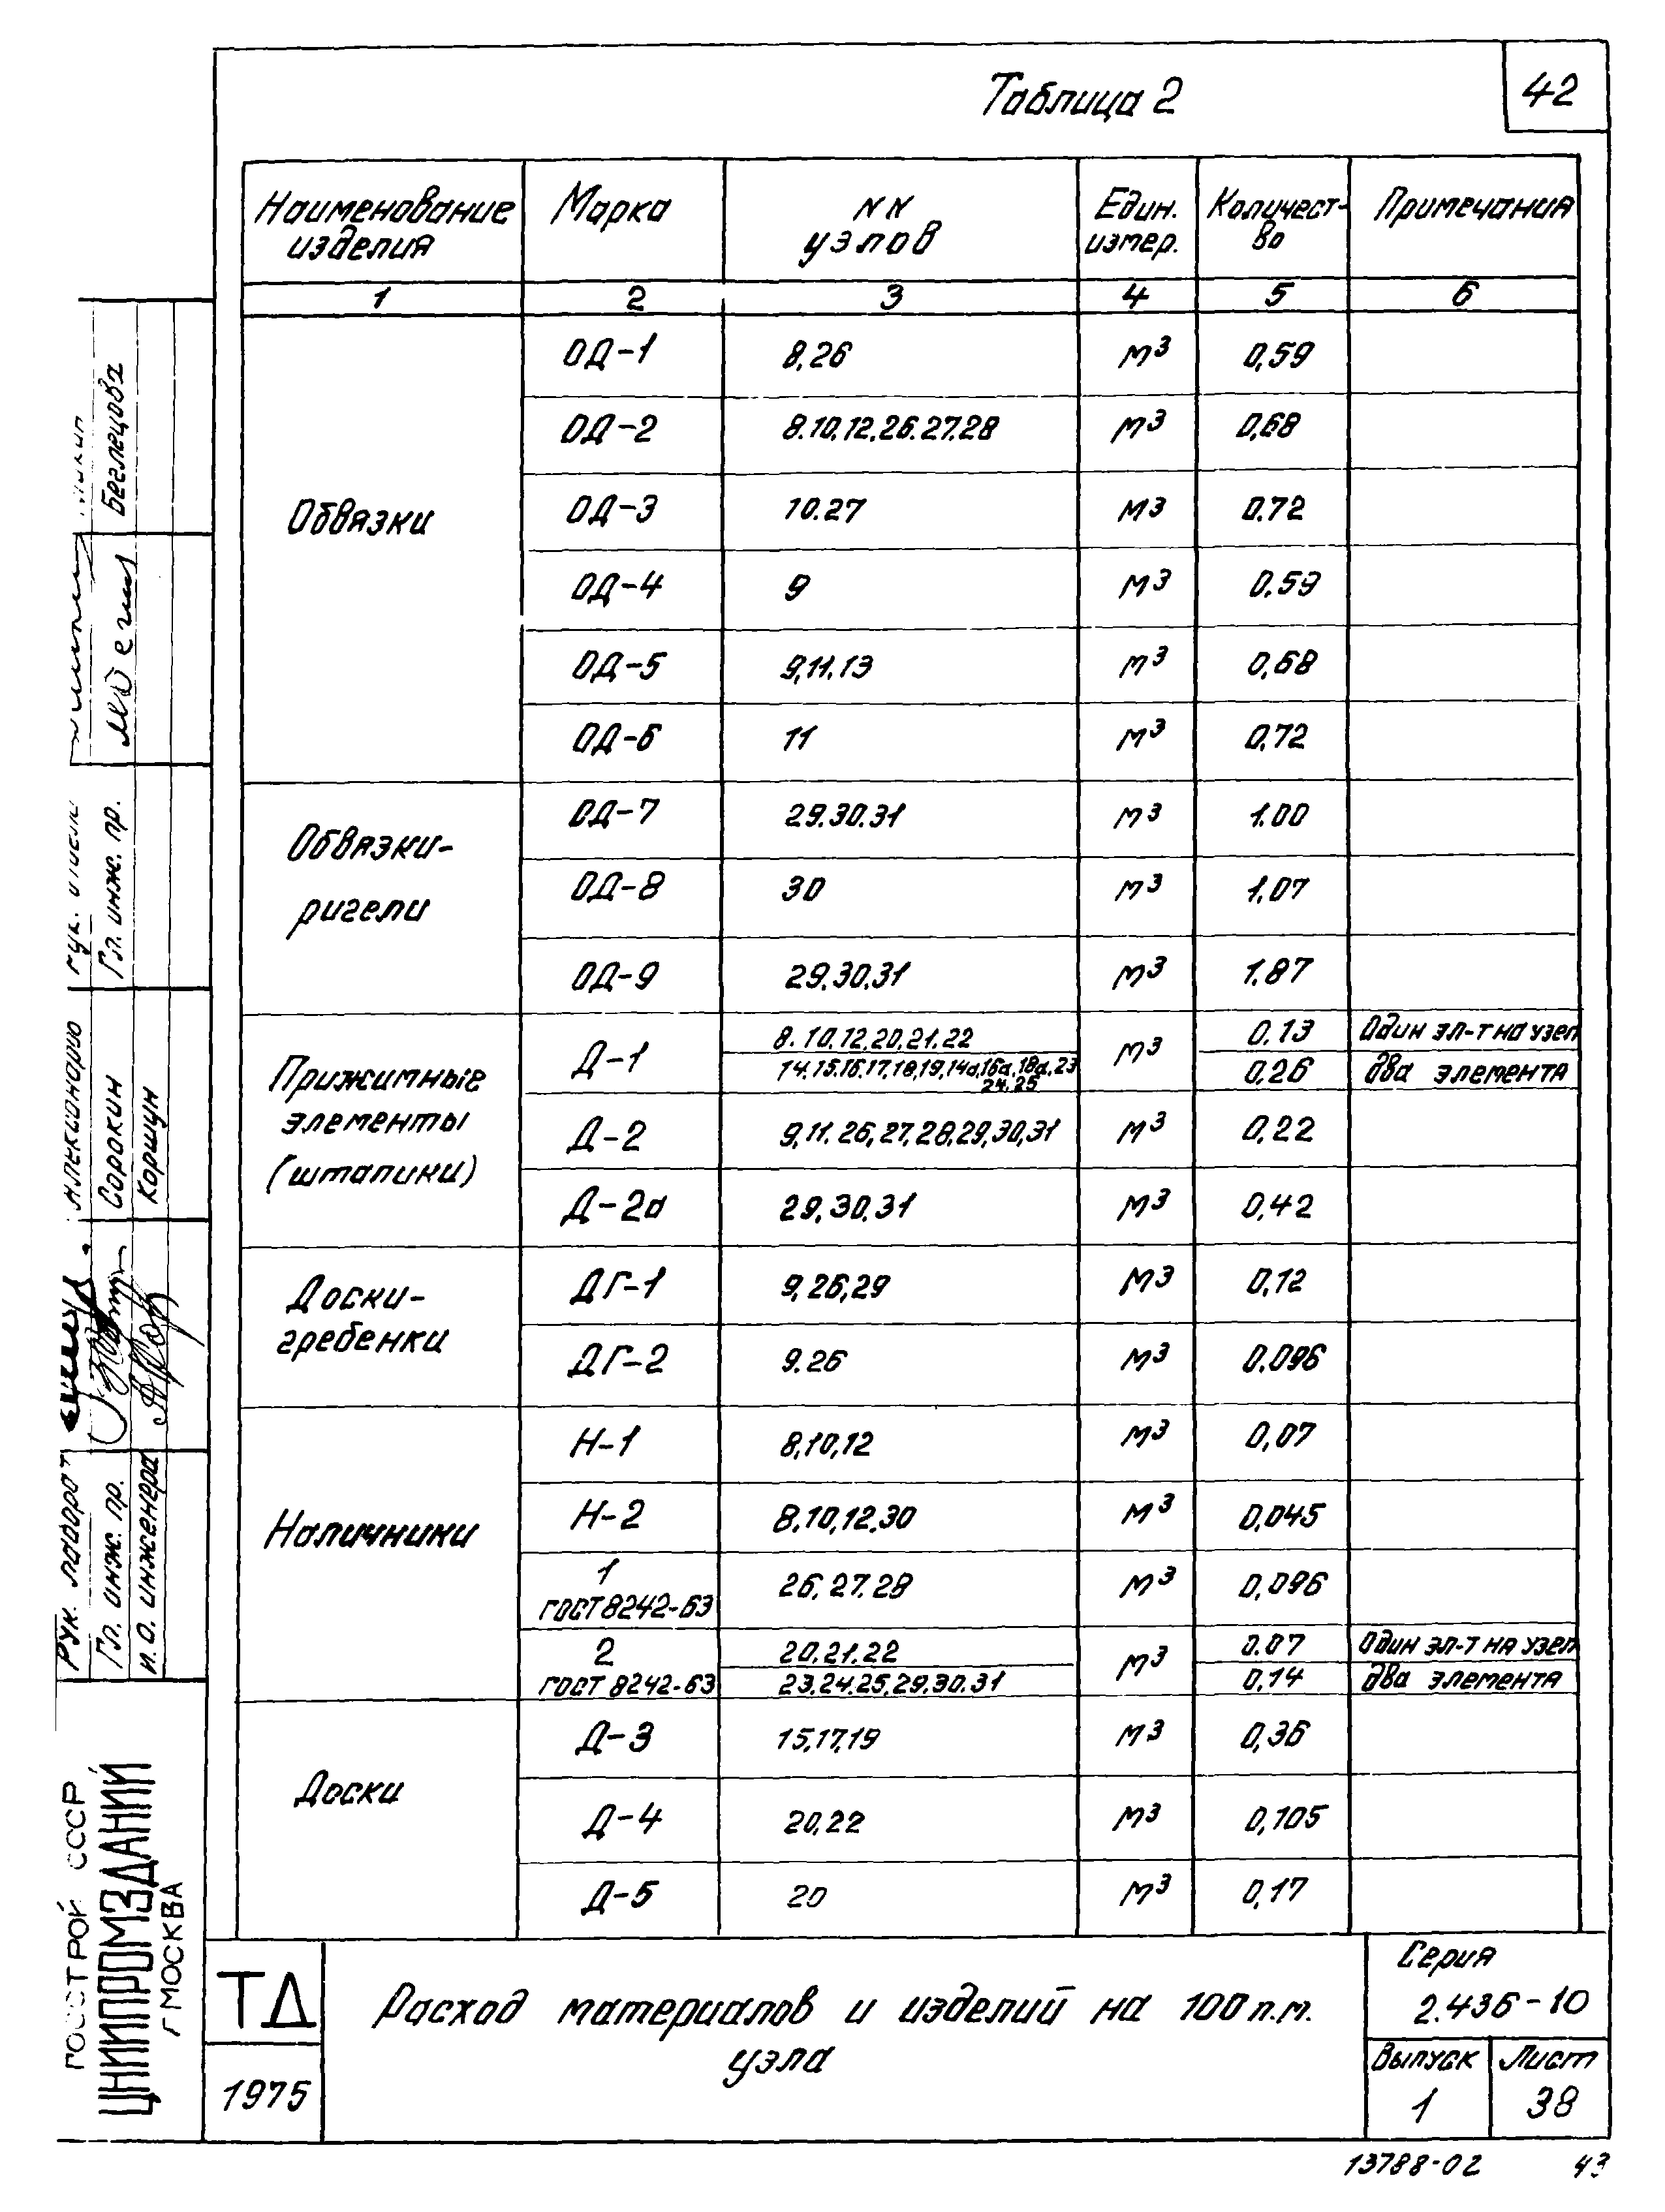 42
Таблица 2
Наименование изделия | Марка | NN узлов | Един. измер. | Количест-во | Примечания
1 | 2 | 3 | 4 | 5 | 6
Обвязки
ОД-1 | 8,26 | м³ | 0,59
ОД-2 | 8.10,12,26.27.28 | м³ | 0,68
ОД-3 | 10.27 | м³ | 0.72
ОД-4 | 9 | м³ | 0.59
ОД-5 | 9,11.13 | м³ | 0,68
ОД-6 | 11 | м³ | 0,72
Обвязки-
ригели
ОД-7 | 29.30.31 | м³ | 1.00
ОД-8 | 30 | м³ | 1,07
ОД-9 | 29.30.31 | м³ | 1.87
Прижимные
элементы
(штапики)
Д-1 | 8.10,12,20,21.22 | м³ | 0,13 | Один эл-т на узел
14.15.16.17,18,19,14а,16а,18а,23 24.25 | 0,26 | два элемента
Д-2 | 9,11.26,27,28,29,30,31 | м³ | 0,22
Д-2а | 29,30,31 | м³ | 0,42
Доски-
гребенки
ДГ-1 | 9,26,29 | м³ | 0,12
ДГ-2 | 9.26 | м³ | 0.096
Наличники
Н-1 | 8,10,12 | м³ | 0,07
Н-2 | 8,10,12,30 | м³ | 0,045
1 ГОСТ 8242-63 | 26,27.28 | м³ | 0,096
2 ГОСТ 8242-63 | 20,21.22 | м³ | 0.07 | Один эл-т на узел
23.24.25,29.30.31 | 0,14 | два элемента
Доски
Д-3 | 15,17,19 | м³ | 0,36
Д-4 | 20,22 | м³ | 0,105
Д-5 | 20 | м³ | 0,17
ТД
1975
Расход материалов и изделий на 100 п.м.
узла
Серия
2.436-10
Выпуск
1
Лист
38
13788-02
43
Беглецова
Гл. инж. пр.
Сорокин
Коршун
Рук.
Гл. инж. пр.
И. О. инженера
ГОССТРОЙ СССР
ЦНИИПРОМЗДАНИЙ
г МОСКВА